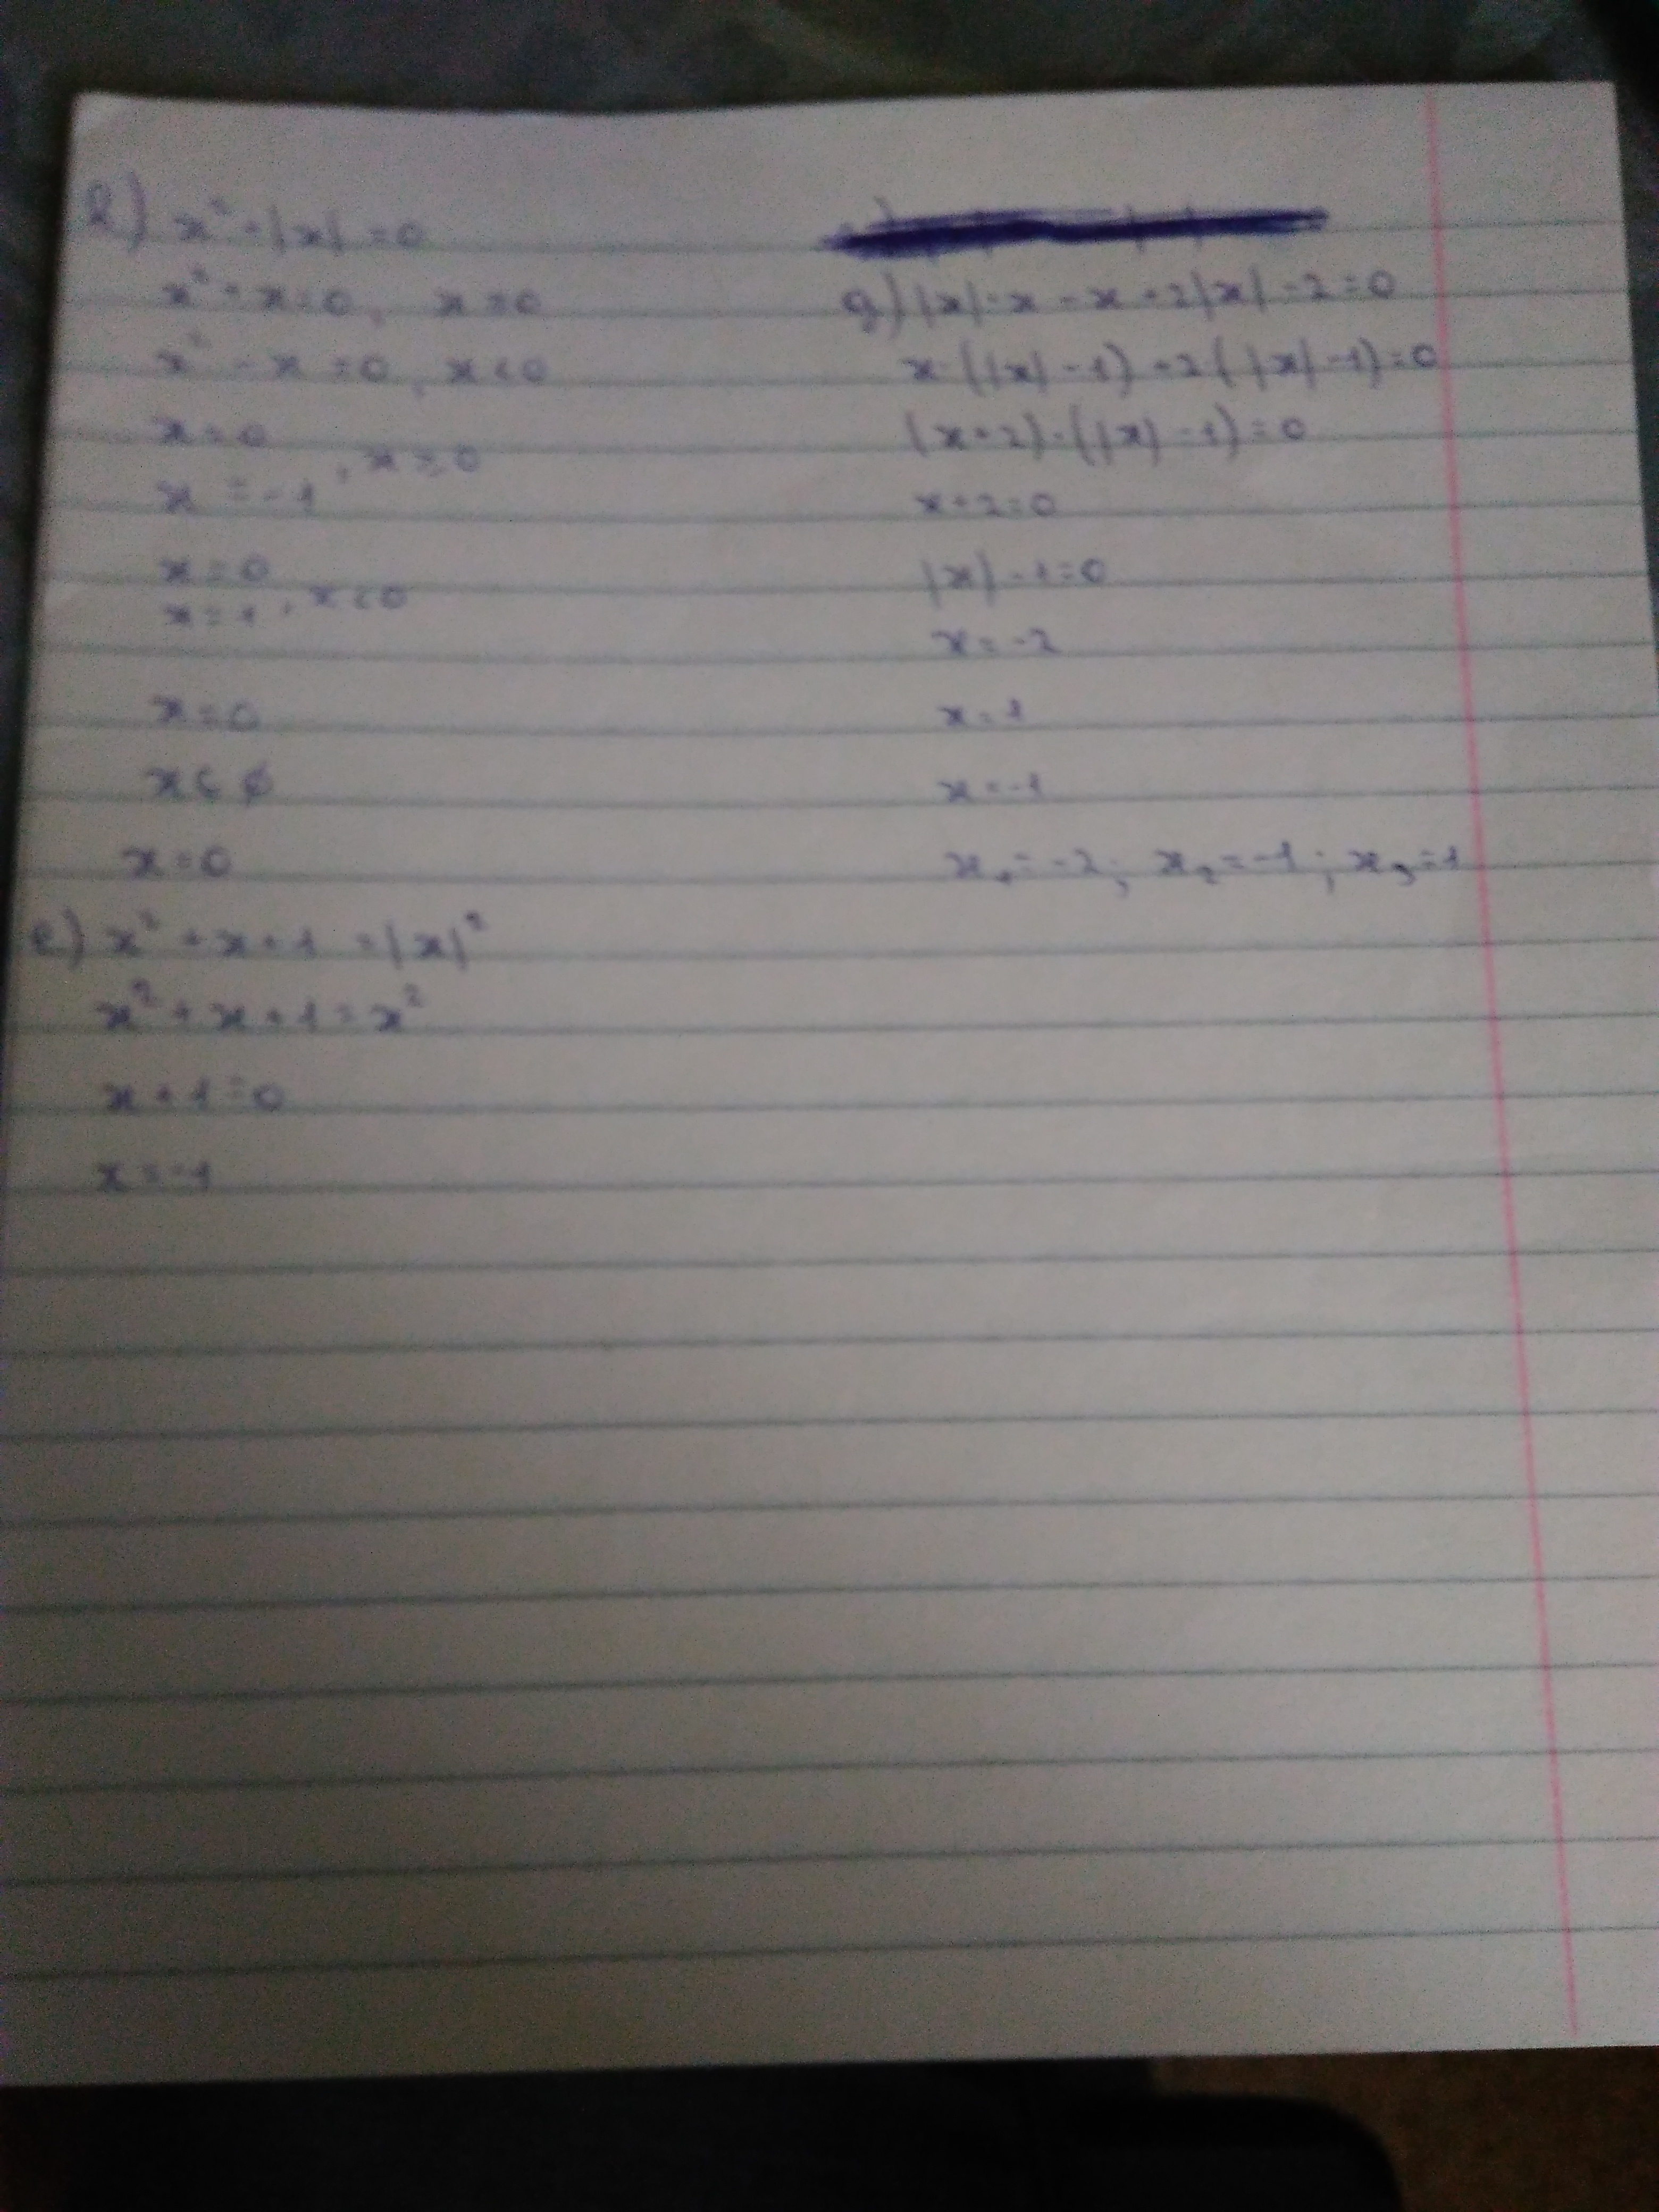 x² + |x| = 0
x² + x = 0, x ≥ 0
x² - x = 0, x < 0
x = 0
x = -1, x ≥ 0
x = 0
x = 1, x < 0
x = 0
x ∈ ∅
x = 0
e) x² + x + 1 = |x|²
x² + x + 1 = x²
x + 1 = 0
x = -1
g) |x| · x - x + 2|x| - 2 = 0
x · (|x| - 1) + 2(|x| - 1) = 0
(x + 2) · (|x| - 1) = 0
x + 2 = 0
|x| - 1 = 0
x = -2
x = 1
x = -1
x₁ = -2; x₂ = -1; x₃ = 1